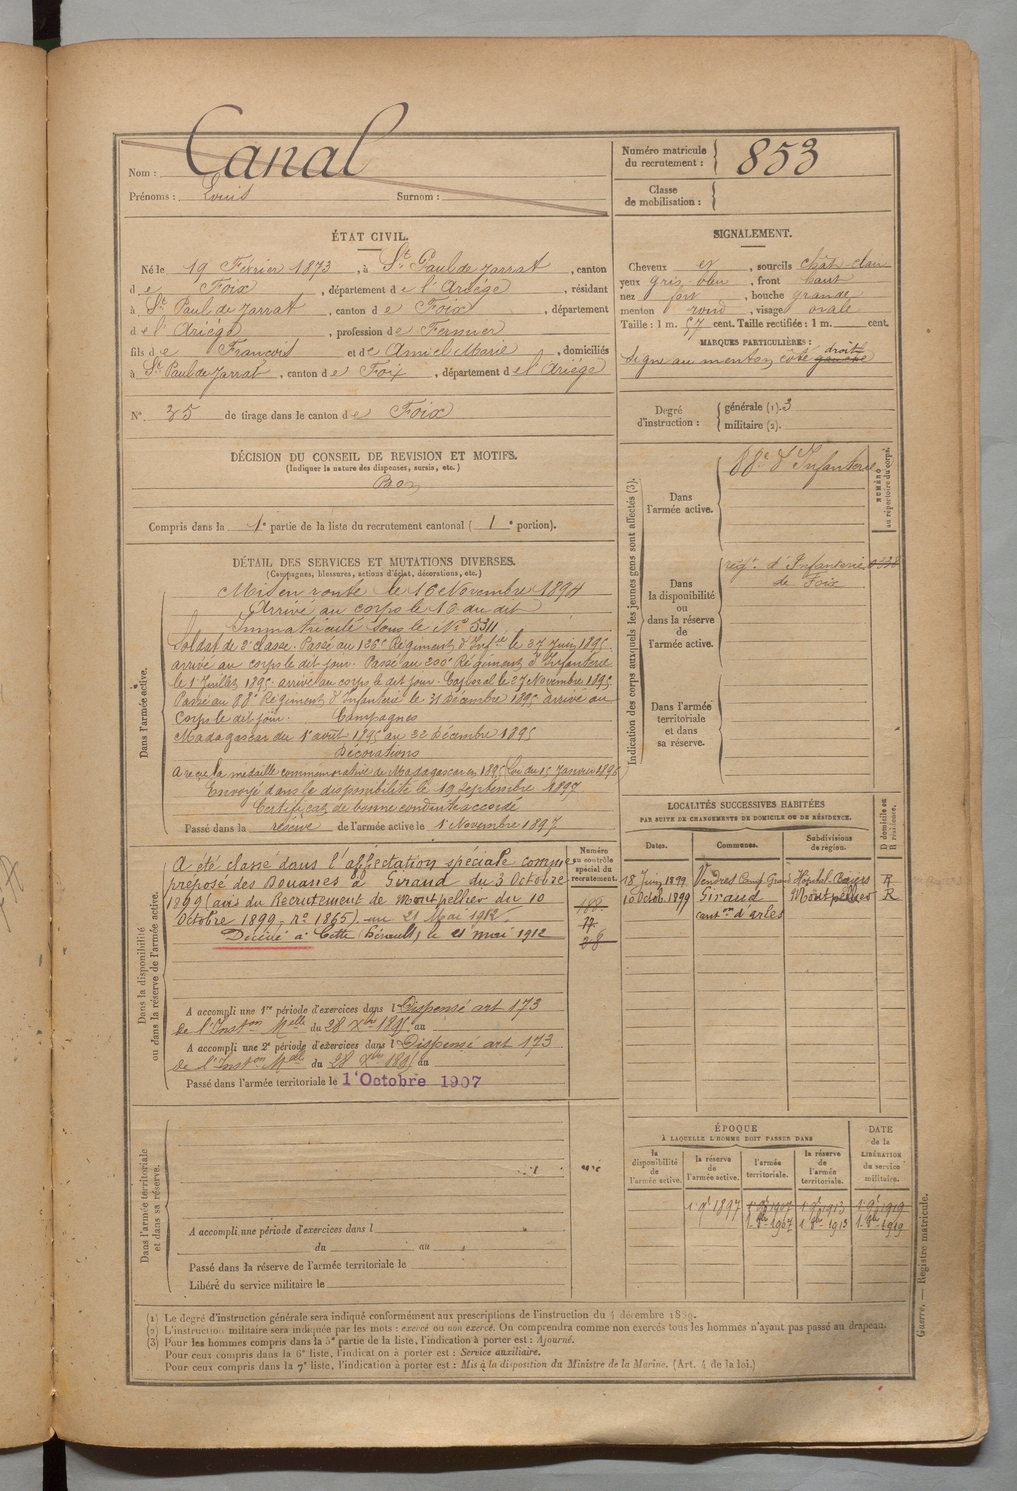 Nom : Canal
Prénoms : Louis Surnom :
Numéro matricule du recrutement : 853
Classe de mobilisation :
ÉTAT CIVIL.
Né le 19 Février 1873, à St Paul de Jarrat, canton
de Foix, département de l'Ariège, résidant
à St Paul de Jarrat, canton de Foix, département
de l'Ariège, profession de Fermier
fils de François et de Amiel Marie, domiciliés
à St Paul de Jarrat, canton de Foix, département de l'Ariège
N° 35 de tirage dans le canton de Foix
SIGNALEMENT.
Cheveux et, sourcils chât-clair
yeux gris bleu, front haut
nez fort, bouche grande
menton rond, visage ovale
Taille : 1 m. 57 cent. Taille rectifiée : 1 m. cent.
MARQUES PARTICULIÈRES :
Signe au menton côté gauche droit
Degré d'instruction : générale (1). 3
militaire (2).
DÉCISION DU CONSEIL DE REVISION ET MOTIFS.
(Indiquer la nature des dispenses, sursis, etc.)
Bon
Compris dans la 1e partie de la liste du recrutement cantonal ( 1 e portion).
DÉTAIL DES SERVICES ET MUTATIONS DIVERSES.
(Campagnes, blessures, actions d'éclat, décorations, etc.)
Dans l'armée active.
Mis en route le 16 Novembre 1894
Arrivé au corps le 16 du dit
Immatriculé sous le No 5311
Soldat de 2e classe. Passé au 126e Régiment d'Infie le 27 Juin 1895
arrivé au corps le dit jour. Passé au 200e Régiment d'Infanterie
le 1 Juillet 1895 arrivé au corps le dit jour. Caporal le 27 Novembre 1895
Passé au 88e Régiment d'Infanterie le 31 décembre 1895 arrivé au
corps le dit jour. Campagnes
Madagascar du 1 avril 1895 au 22 décembre 1895
Décorations
A reçu la médaille commémorative de Madagascar en 1895 Loi du 15 Janvier 1896
Envoyé dans la disponibilité le 19 Septembre 1897
Certificat de bonne conduite accordé
Passé dans la réserve de l'armée active le 1 Novembre 1897
Indication des corps auxquels les jeunes gens sont affectés (3).
NUMÉRO au répertoire du corps.
Dans l'armée active.
88e d'Infanterie
Dans la disponibilité ou dans la réserve de l'armée active.
régt. d'Infanterie
de Foix
Dans l'armée territoriale et dans sa réserve.
LOCALITÉS SUCCESSIVES HABITÉES
PAR SUITE DE CHANGEMENTS DE DOMICILE OU DE RÉSIDENCE.
Dates. Communes. Subdivisions de région. D domicile ou R résidence.
18 Juin 1899 Vendres R
10 Octob. 1899 Giraud Montpellier R
cant on d'arles
Dans la disponibilité ou dans la réserve de l'armée active.
Numéro au contrôle spécial du recrutement.
A été classé dans l'affectation spéciale comme
préposé des Douanes à Giraud du 3 Octobre
1899 (avis du Recrutement de Montpellier du 10
Octobre 1899 - no 1865) 21 Mai 1912
Décédé à Cette (Hérault) le 21 mai 1912
A accompli une 1re période d'exercices dans l Dispensé art 173
de l'Inston Melle du 28 Xbre 1895 au
A accompli une 2e période d'exercices dans l Dispensé art 173
de l'Inston Melle du 28 Xbre 1895 au
Passé dans l'armée territoriale le 1e Octobre 1907
Dans l'armée territoriale et dans sa réserve.
A accompli une période d'exercices dans l
du au
Passé dans la réserve de l'armée territoriale le
Libéré du service militaire le
ÉPOQUE
À LAQUELLE L'HOMME DOIT PASSER DANS
DATE de la LIBÉRATION du service militaire.
la disponibilité de l'armée active. la réserve de l'armée active. l'armée territoriale. la réserve de l'armée territoriale.
1 9b 1897 1 9b 1907 1 9b 1913 1 9b 1919
1. 8b 1907 1 8b 1913 1. 8b 1919
Guerre. — Registre matricule.
(1) Le degré d'instruction générale sera indiqué conformément aux prescriptions de l'instruction du 4 décembre 1889.
(2) L'instruction militaire sera indiquée par les mots : exercé ou non exercé. On comprendra comme non exercés tous les hommes n'ayant pas passé au drapeau.
(3) Pour les hommes compris dans la 5e partie de la liste, l'indication à porter est : Ajourné.
Pour ceux compris dans la 6e liste, l'indication à porter est : Service auxiliaire.
Pour ceux compris dans la 7e liste, l'indication à porter est : Mis à la disposition du Ministre de la Marine. (Art. 4 de la loi.)